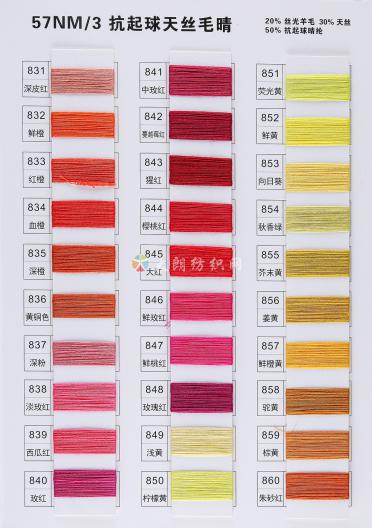 57NM/3 抗起球天丝毛晴
20% 丝光羊毛 30% 天丝
50% 抗起球晴纶
831
深皮红
832
鲜橙
833
红橙
834
血橙
835
深橙
836
黄铜色
837
深粉
838
淡玫红
839
西瓜红
840
玫红
841
中玫红
842
蔓越莓红
843
猩红
844
樱桃红
845
大红
846
鲜玫红
847
鲜桃红
848
玫瑰红
849
浅黄
850
柠檬黄
851
荧光黄
852
鲜黄
853
向日葵
854
秋香绿
855
芥末黄
856
姜黄
857
鲜橙黄
858
驼黄
859
棕黄
860
朱砂红
大朗纺织网